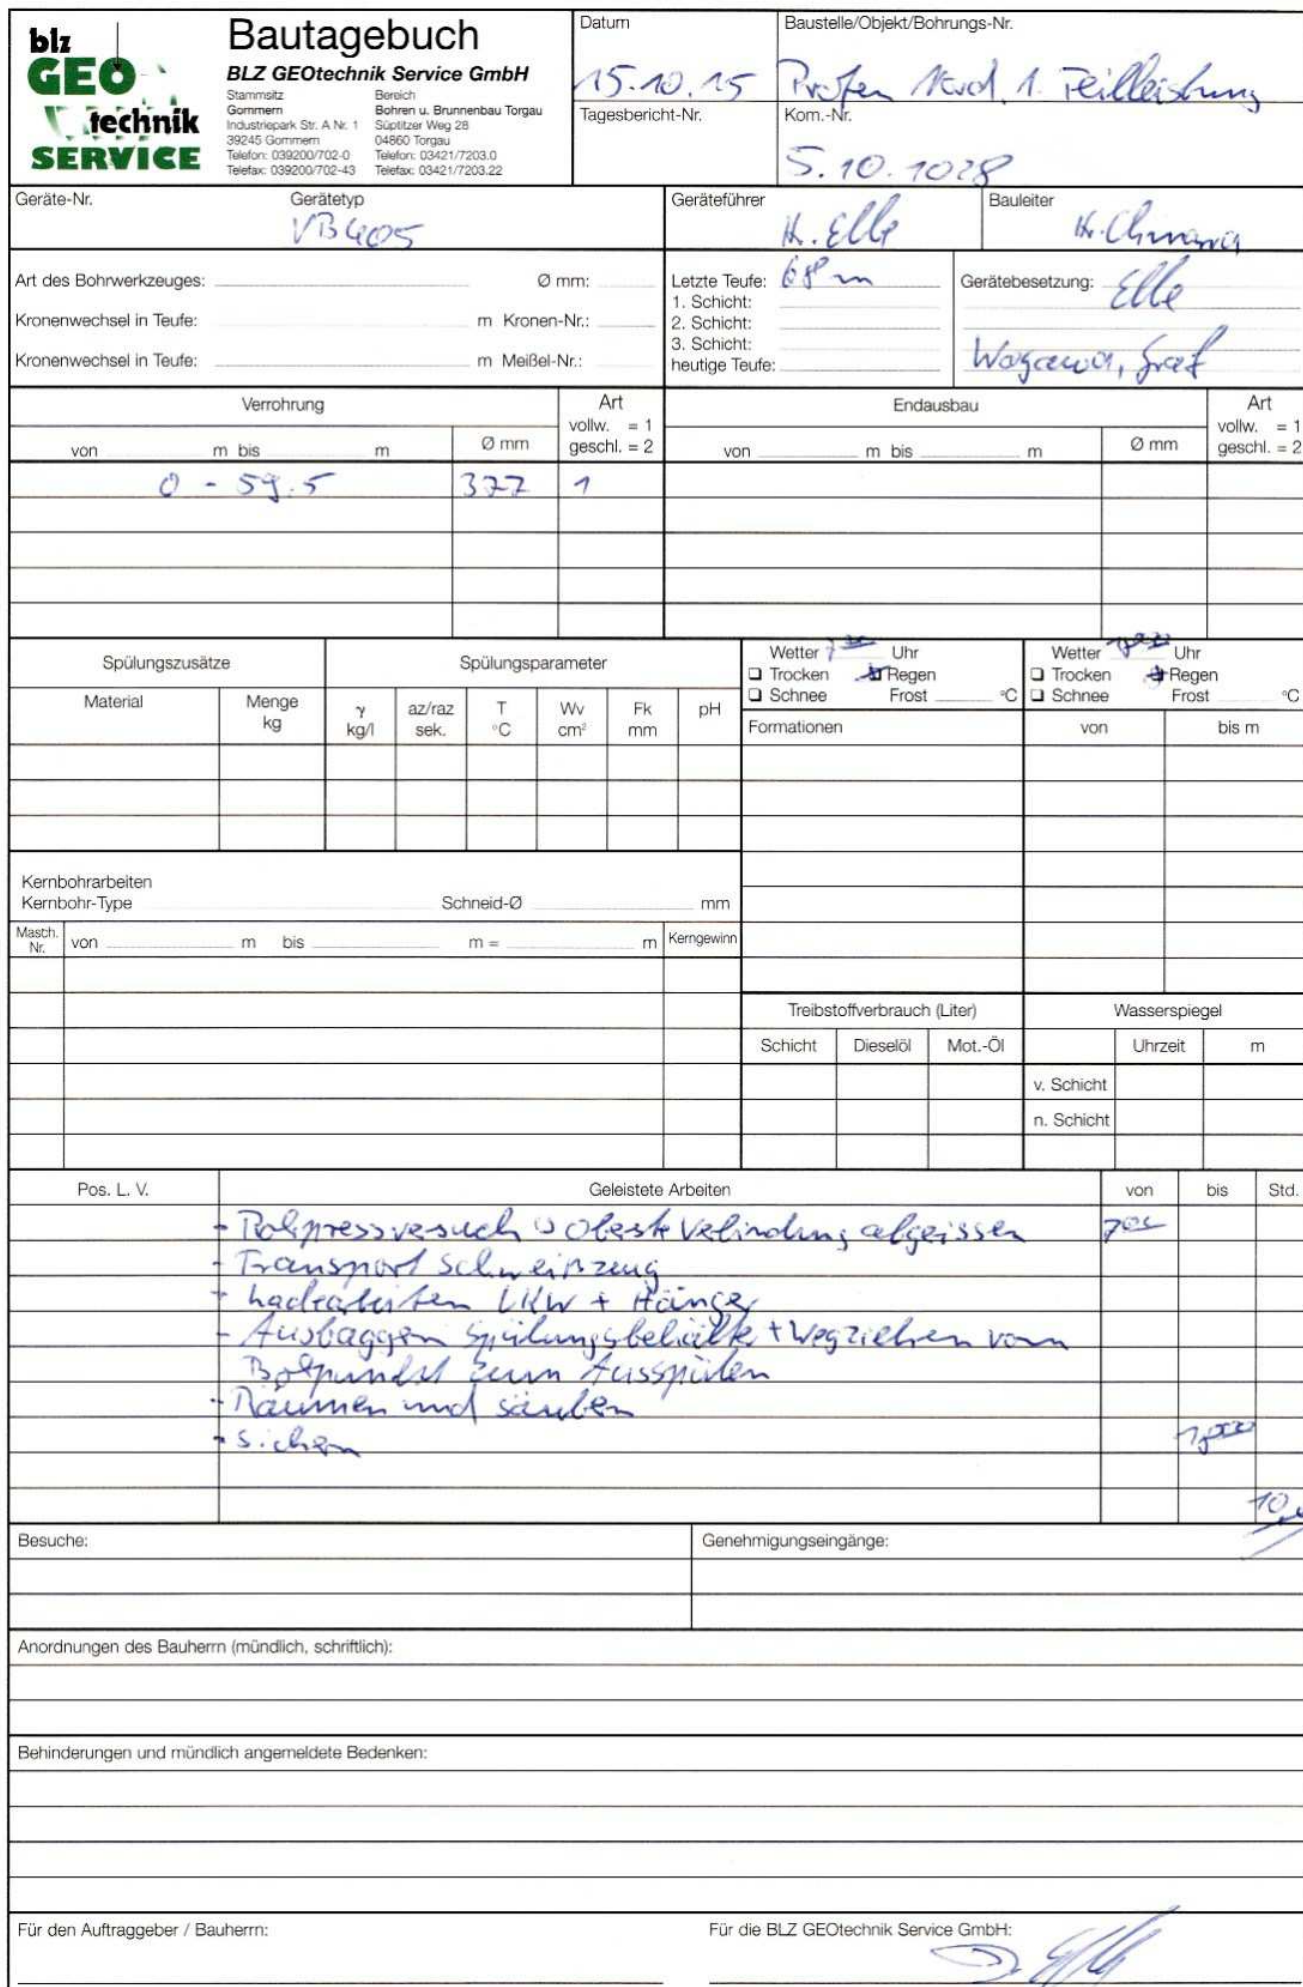 blz
GEO
technik
SERVICE
Bautagebuch
BLZ GEOtechnik Service GmbH
Stammsitz Bereich
Gommern Bohren u. Brunnenbau Torgau
Industriepark Str. A Nr. 1 Süptitzer Weg 28
39245 Gommern 04860 Torgau
Telefon: 039200/702-0 Telefon: 03421/7203.0
Telefax: 039200/702-43 Telefax: 03421/7203.22
Datum
15.10.15
Tagesbericht-Nr.
Baustelle/Objekt/Bohrungs-Nr.
Profen Nord, 1. Teilleistung
Kom.-Nr.
5.10.1028
Geräte-Nr. Gerätetyp
VB405
Geräteführer
H. Elle
Bauleiter
Hr.
Art des Bohrwerkzeuges: Ø mm:
Kronenwechsel in Teufe: m Kronen-Nr.:
Kronenwechsel in Teufe: m Meißel-Nr.:
Letzte Teufe: 68 m
1. Schicht:
2. Schicht:
3. Schicht:
heutige Teufe:
Gerätebesetzung: Elle
Graf
Verrohrung
von m bis m
Ø mm
Art
vollw. = 1
geschl. = 2
Endausbau
von m bis m
Ø mm
Art
vollw. = 1
geschl. = 2
0 - 59.5 377 1
Spülungszusätze
Spülungsparameter
Material
Menge
kg
γ
kg/l
az/raz
sek.
T
°C
Wv
cm²
Fk
mm
pH
Wetter 7 00 Uhr
Trocken Regen
Schnee Frost °C
Wetter Uhr
Trocken Regen
Schnee Frost °C
Formationen von bis m
Kernbohrarbeiten
Kernbohr-Type Schneid-Ø mm
Masch.
Nr.
von m bis m = m Kerngewinn
Treibstoffverbrauch (Liter)
Schicht Dieselöl Mot.-Öl
Wasserspiegel
Uhrzeit m
v. Schicht
n. Schicht
Pos. L. V. Geleistete Arbeiten von bis Std.
- Verbindung abgerissen 700
- Transport Schweißzeug
- Ladearbeiten LKW + Hänger
- Ausbaggern Spülungsbehälter + Wegziehen vom
Bohrpunkt zum Ausspülen
- Räumen und säubern
- Sichern
10
Besuche:
Genehmigungseingänge:
Anordnungen des Bauherrn (mündlich, schriftlich):
Behinderungen und mündlich angemeldete Bedenken:
Für den Auftraggeber / Bauherrn:
Für die BLZ GEOtechnik Service GmbH: